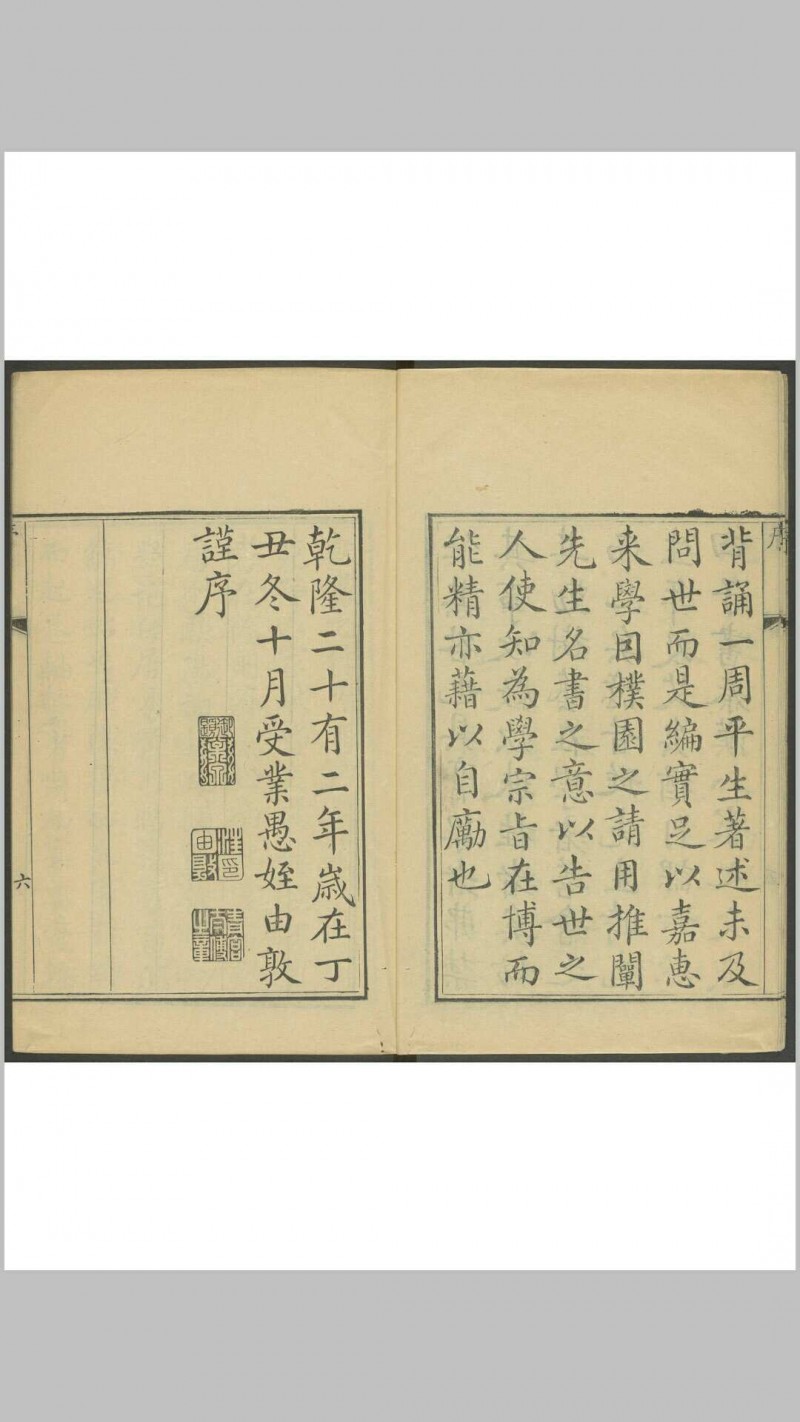 序
背誦一周平生著述未及
問世而是編實足以嘉惠
来學因樸園之請用推闡
先生名書之意以告世之
人使知為學宗旨在博而
能精亦藉以自勵也
乾隆二十有二年歲在丁
丑冬十月受業愚姪由敦
謹序
汪由敦印
六